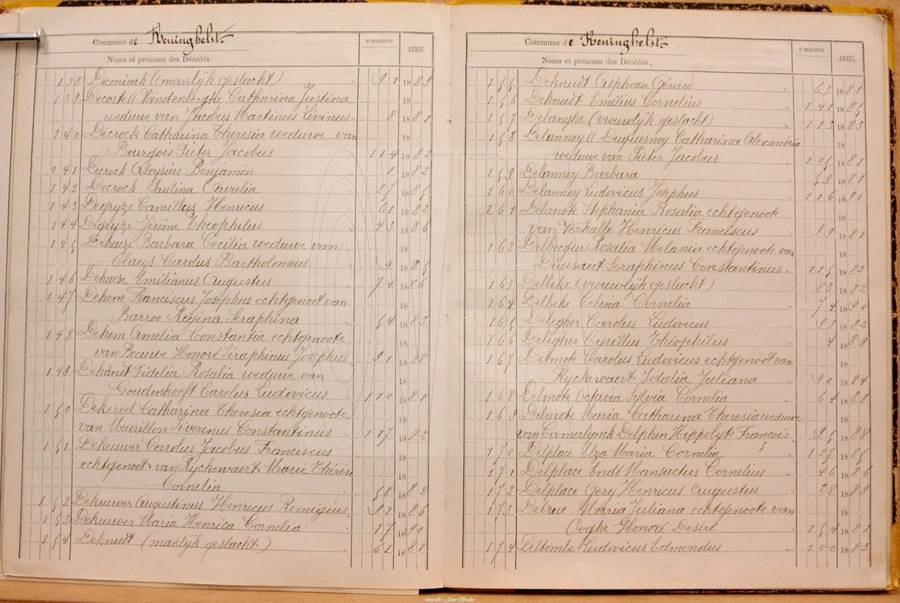 Commune de Reninghelst.
Noms et prénoms des Décédés.
ANNÉE.
138 Deconinck (manlijk geslacht) 91 1889
139 Decorte (Vandenberghe Catharina Justina
weduwe van Jacobus Martinus Livinus 8 1881
140 Decrock Catharina Theresia weduwe van
Bourgois Pieter Jacobus 114 1882
141 Decrock Aloysius Benjamin 1 1882
142 Decrock Paulina Aurelia 1885
143 Degryze Camillus Henricus 61 1882
144 Degryze Jérôme Theophilus 43 1886
145 Dehaese Barbara Cecilia weduwe van
Claeys Carolus Bartholomeus 9 1885
146 Dehaese Emilianus Augustus 74 1886
147 Dehem Franciscus Josephus echtgenoot van
Barroo Regina Seraphina 54 1883
148 Dehem Amelia Constantia echtgenoote
van Honoré Seraphinus Josephus 91 1888
149 Fidelia Rosalia weduwe van
Goudenhooft Carolus Ludovicus 110 1881
150 Catharina Theresia echtgenoote
van Murillon Severinus Constantinus 117 1882
151 Dekeuwer Carolus Jacobus Franciscus
echtgenoot van Ryckewaert Marie Thérèse
Cornelia 58
152 Dekeuwer Augustinus Henricus Remigius 1886
153 Dekeuwer Maria Henrica Cornelia 17 1890
154 Deknudt (manlijk geslacht) 61 1881
Commune de Reninghelst.
Noms et prénoms des Décédés.
ANNÉE.
155 Deknudt Alphons Gérard 1881
156 Deknudt Emilius Cornelius 141 1885
157 Delanghe (vrouwlijk geslacht) 113 1883
158 Delannoy (Duquesnoy Catharina Alexandria
weduwe van Pieter Jacobus 105 1881
159 Delannoy Barbara 1881
160 Delannoy Ludovicus Josephus 116 1890
161 Delanote Stephania Rosalia echtgenoote
van Verhalle Henricus Franciscus 1881
162 Delbecque Rosalia Melania echtgenoote van
Seraphinus Constantinus 115 1882
163 Delbeke (vrouwlijk geslacht) 83 1882
164 Delbeke Celina Cornelia 74 1890
165 Deligher Carolus Ludovicus 1882
166 Deligher Cyrillus Theophilus 4 1889
167 Delmote Carolus Ludovicus echtgenoot van
Ryckewaert Idalia Juliana 90 1884
168 Delmote Octavia Sylvia Cornelia 64 1888
169 Delmote Maria Catharina Theresia weduwe
van Cirmerlynck Delphin Hippolyte François 95 1888
170 Delplace Elza Maria Cornelia 127 1885
171 Delplace Mansuetus Cornelius 46 1886
172 Delplace Gery Henricus Augustus 28 1889
173 Delrue Maria Juliana echtgenoote van
Cooghe Honoré Désiré 154 1881
174 Deltombe Ludovicus Edmondus 100 1883